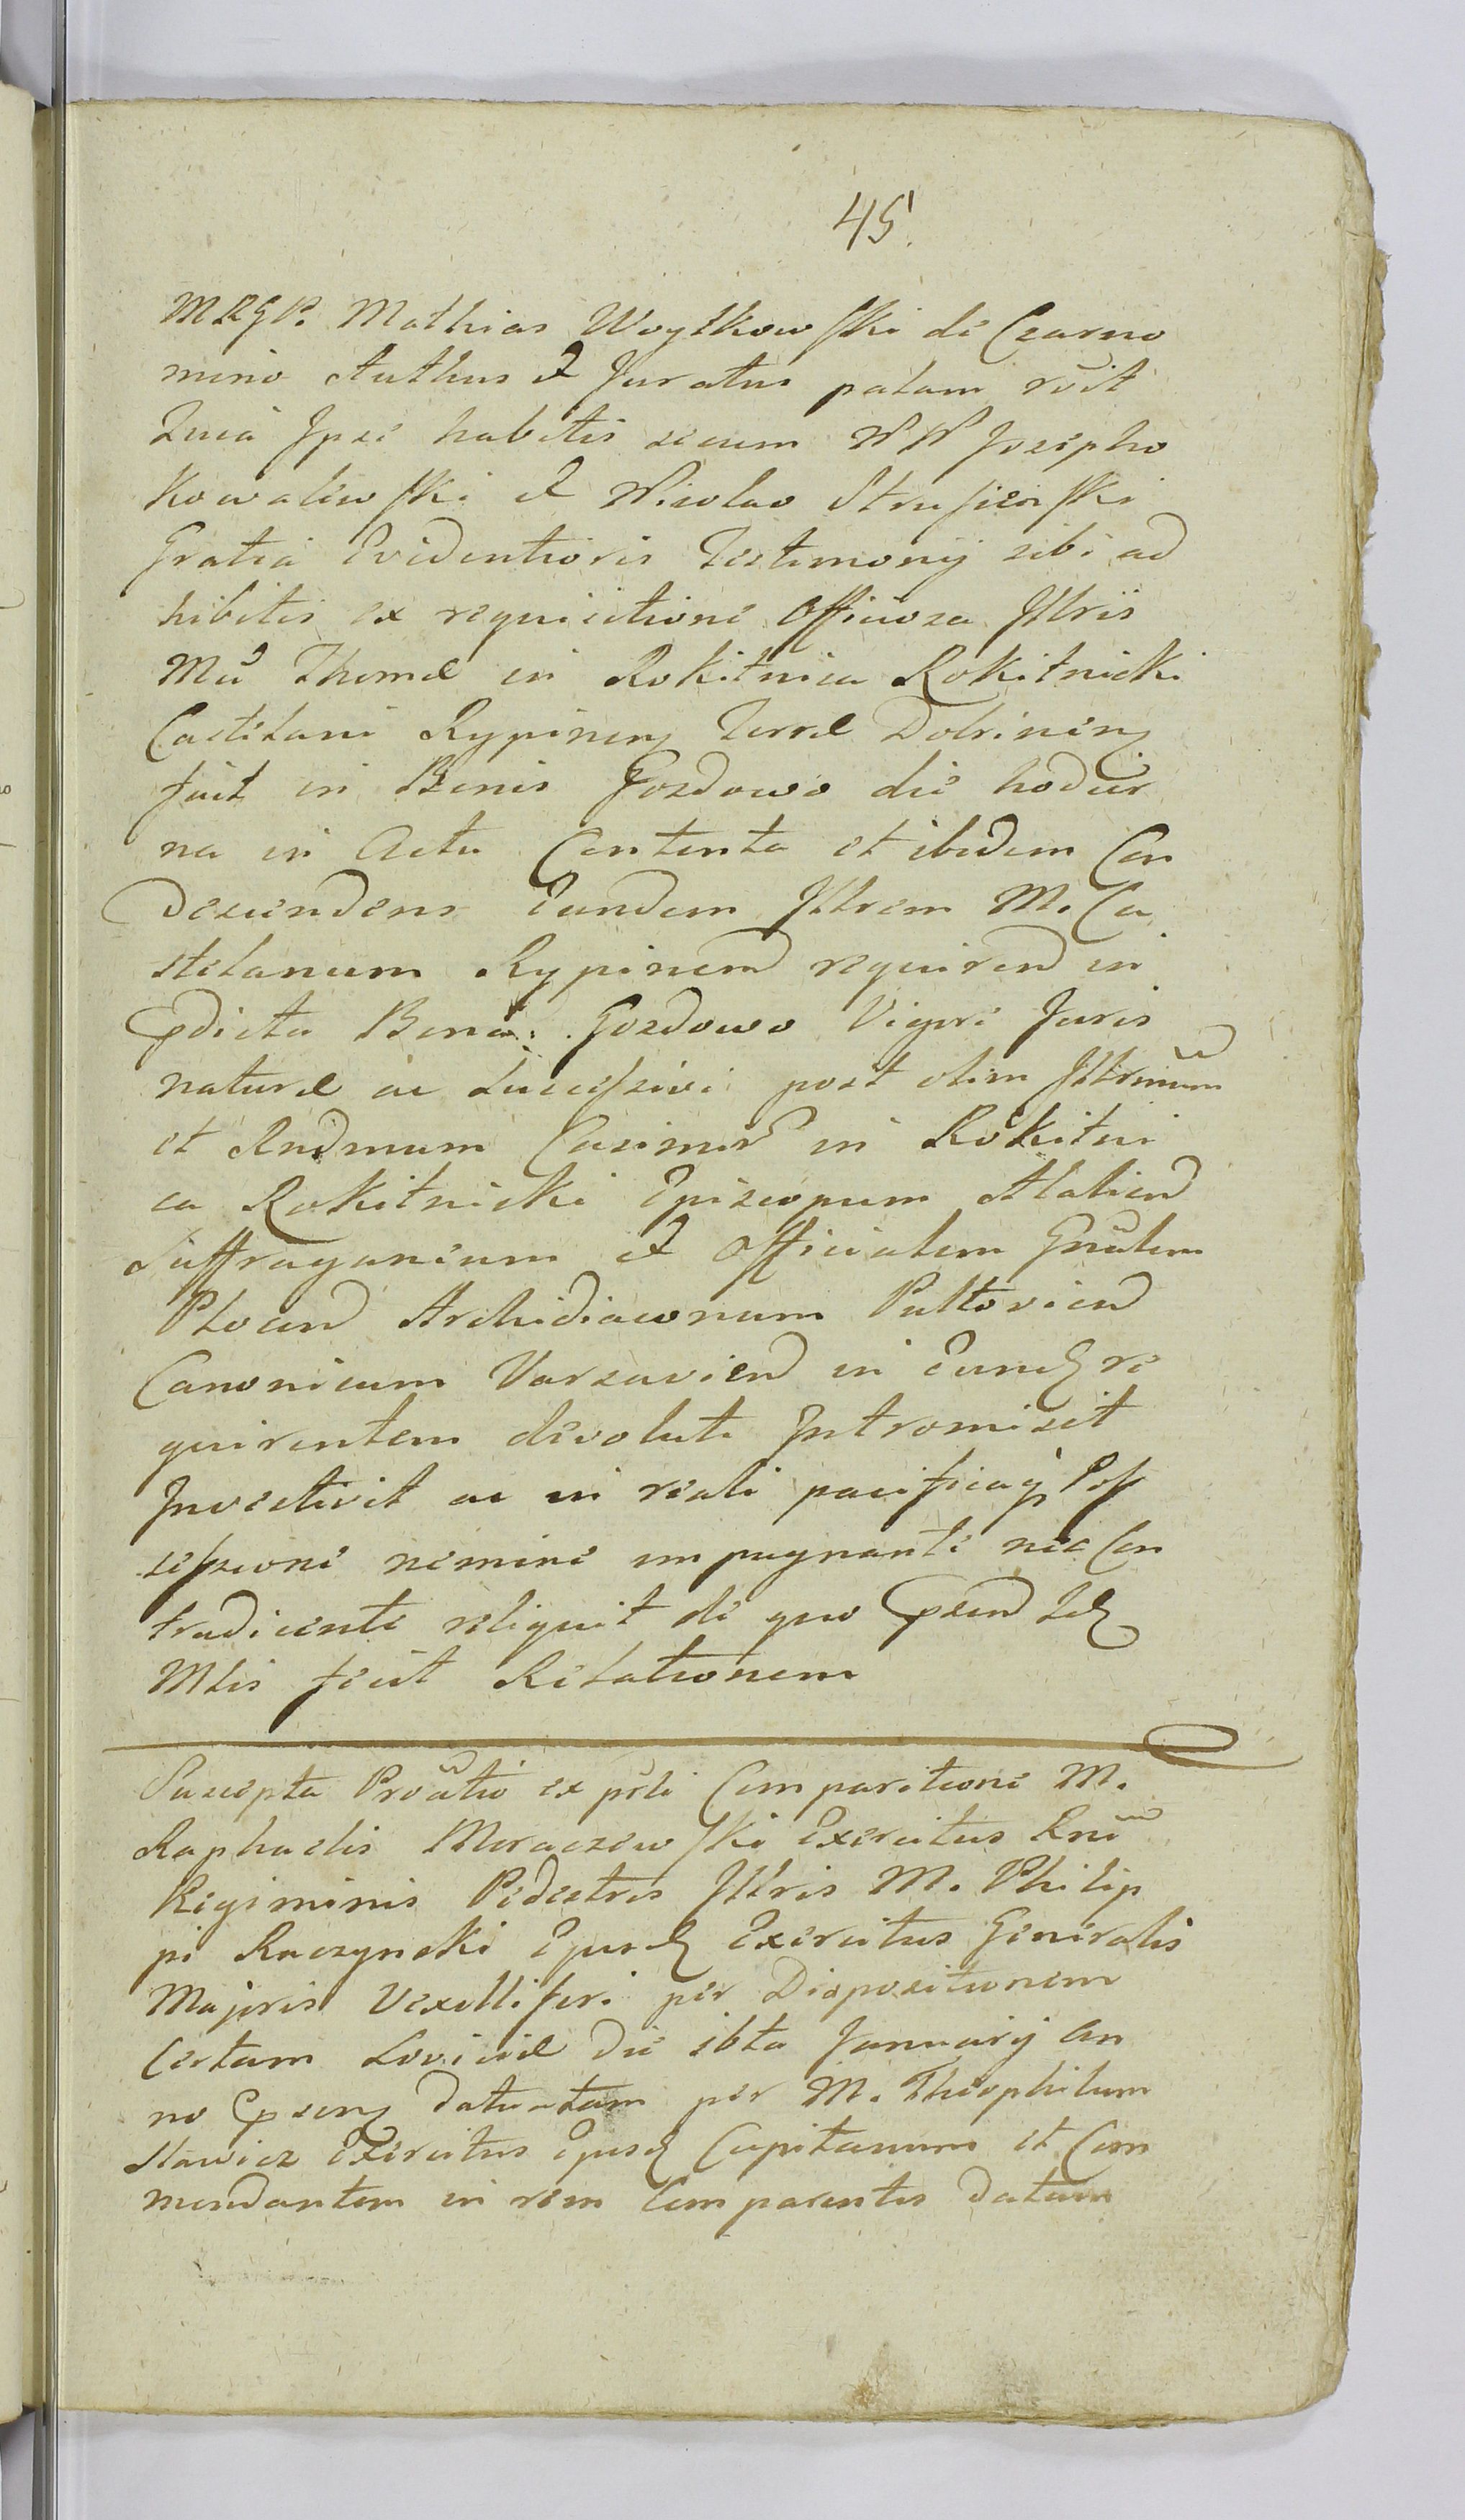 45.
MRGP. Mathias Woytkowski de Czarno
mino Authus et Juratus palam rčit
Quia Ipse habitis secum NN Josepho
Kowalewski et Nicolao Strusienski
Gratia Evidentioris Testimonij sibi ad
hibitis ex requisitione officiosa Illris
Mci Thomæ in Rokitnica Rokitnicki
Castelani Rypinen Terræ Dobrinen
fuit in Bonis Gozdowo die hodier
na in Actu Contenta et ibidem Con
descendens Eundem Illrem M. Ca
stelanum Rypinen requiren in
pdicta Bona Gozdowo Vigore Juris
naturæ ac Successive post olim Illrmum
et Rndmum Casimir in Rokitni
ca Rokitnicki Episcopum Atalien
Suffraganeum et Officialem Gnalem
Plocen Archidiaconum Pultovien
Canonicum Varsavien in Eund re
quirentem devoluti Intromisit
Investivit ac in reali pacificaq Pos
sessione nemine impugnante nec Con
tradicente reliquit de quo psen
Mlis fecit Relationem
Suscepta Provatio ex psli Comparitione M.
Raphaelis Moraczewski Exercitus Rni
Regiminis Pedestris Illris M. Philip
pi Raczynski Ejusd Exercitus Generalis
Majoris Vexilliferi per Dispositionem
Certam Loviciæ die 16ta Januarij An
no psen datuatam per M. Theophilum
Stawicz Exercitus Ejusd Capitaneum et Com
mendantem in rem Comparentis datam